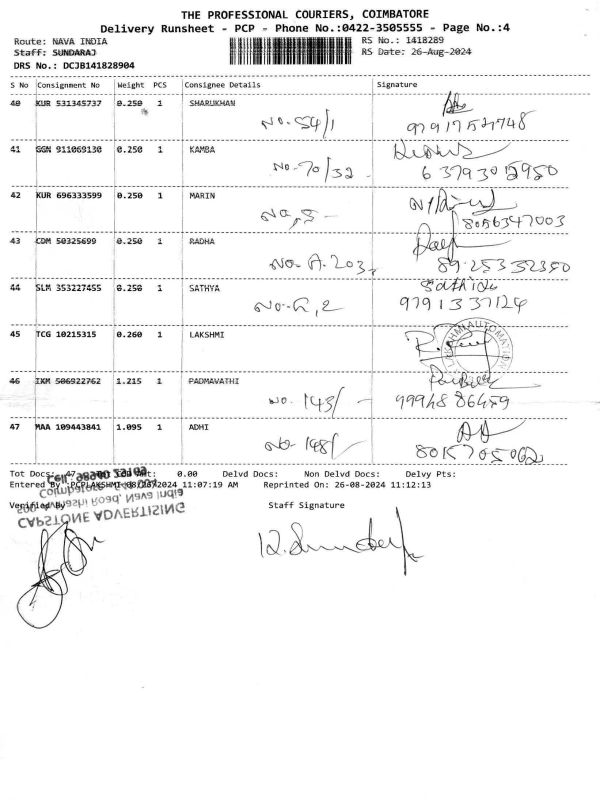 THE PROFESSIONAL COURIERS, COIMBATORE
Delivery Runsheet - PCP - Phone No.:0422-3505555 - Page No.:4
Route: NAVA INDIA RS No.: 1418289
Staff: SUNDARAJ RS Date: 26-Aug-2024
DRS No.: DCJB141828904
S No Consignment No Weight PCS Consignee Details Signature
40 KUR 531345737 0.250 1 SHARUKHAN
No. 54/1
41 GGN 911069130 0.250 1 KAMBA
No. 70/32 6379301
42 KUR 696333599 0.250 1 MARIN
No, 5 - 8056347003
43 CDM 50325699 0.250 1 RADHA
No. A. 203, 8925332350
44 SLM 353227455 0.250 1 SATHYA Sathiya
No. G, 2 9791337124
45 TCG 10215315 0.260 1 LAKSHMI
LAKSHMI AUTOMATION
46 IXM 506922762 1.215 1 PADMAVATHI
No. 143/- 9994886459
47 MAA 109443841 1.095 1 ADHI
No. 148/- 8015705062
Tot Docs: 47 Tot Amt: 0.00 Delvd Docs: Non Delvd Docs: Delvy Pts:
Entered By :PCPLAKSHMI 11:07:19 AM Reprinted On: 26-08-2024 11:12:13
Verified By Staff Signature
Coimbatore
Avinashi Road, Nava India
CAPSTONE ADVERTISING